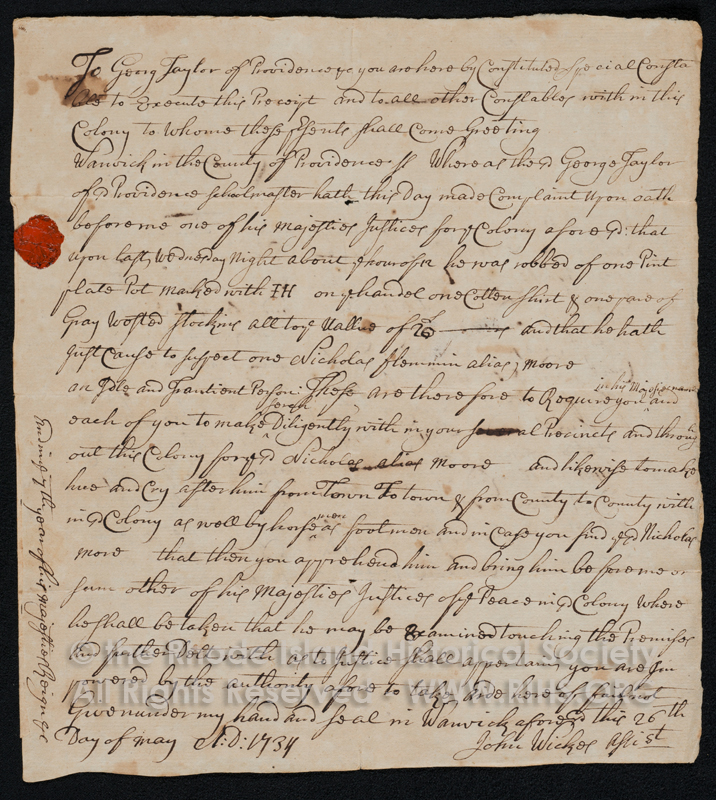 To Georg Taylor of Providence &c you are here by Constituted special Consta
ble to Execute this Precept and to all other Constables with in this
Colony to Whome these Psents shall Come Greeting
Warwick in the County of Providence ss Where as the sd George Taylor
of sd Providence scholmaster hath this Day made Complaint Upon oath
before me one of his Majesties Justices for ye Colony afore sd: that
upon Last Wednesday Night about ye hour of he was robbed of one Pint
plate Pot marked with IH on ye handel one Cotten Shirt & one pare of
Gray Wosted stockins all to ye Vallue of and that he hath
Just Cause to suspect one Nicholas Flemmin alias Moore
an Idle and Trantient Person: These are therefore to Require you in his Majesties name and
each of you to make Diligently serch with in your several Precincts and throug
out this Colony for ye sd Nicholas alias Moore and likewise to make
hue and Cry after him from Town To town & from County to County with
in sd Colony as well by horse men as foot men and in Case you find ye sd Nicholas
more that then you apprehend him and bring him before me or
sum other of his Majesties Justices of ye Peace in sd Colony Where
he shall be taken that he may be Examined touching the Premises
and further Delt with as to Justice shall appertain you are Im
powered by the authority afore sd to take Aide here of faile not
Given under my hand and seal in Warwick afore sd this 26th
Day of may A:D: 1734 John Wickes Assist
And in ye 7th year of his majesties Reign &c
© The Rhode Island Historical Society
All Rights Reserved WWW.RIHS.ORG